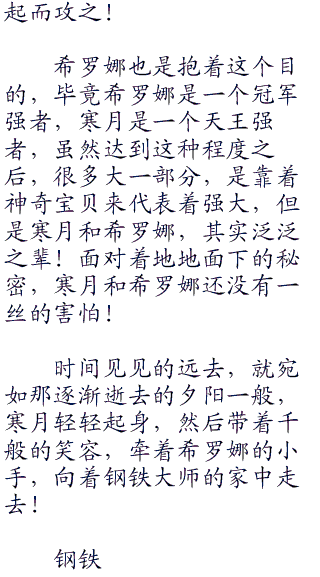 起而攻之！
希罗娜也是抱着这个目
的，毕竟希罗娜是一个冠军
强者，寒月是一个天王强
者，虽然达到这种程度之
后，很多大一部分，是靠着
神奇宝贝来代表着强大，但
是寒月和希罗娜，其实泛泛
之辈！面对着地地面下的秘
密，寒月和希罗娜还没有一
丝的害怕！
时间见见的远去，就宛
如那逐渐逝去的夕阳一般，
寒月轻轻起身，然后带着千
般的笑容，牵着希罗娜的小
手，向着钢铁大师的家中走
去！
钢铁